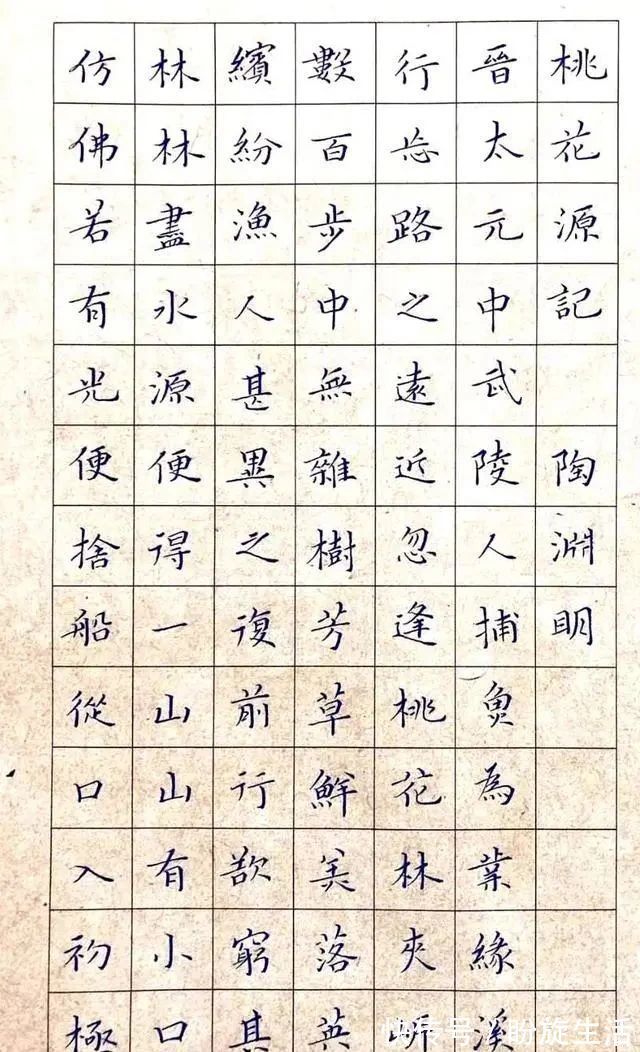 桃花源記 陶淵明
晉太元中武陵人捕魚為業緣溪
行忘路之遠近忽逢桃花林夾岸
數百步中無雜樹芳草鮮美落英
繽紛漁人甚異之復前行欲窮其
林林盡水源便得一山山有小口
仿佛若有光便捨船從口入初極
快传号/盼旋生活